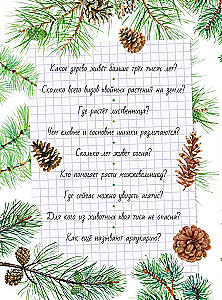 Какое дерево живёт больше трёх тысяч лет?
Сколько всего видов хвойных растений на земле?
Где растёт лиственница?
Чем еловые и сосновые шишки различаются?
Сколько лет живёт сосна?
Кто помогает расти можжевельнику?
Где сейчас можно увидеть агатис?
Для кого из животных хвоя тиса не опасна?
Как ещё называют араукарию?